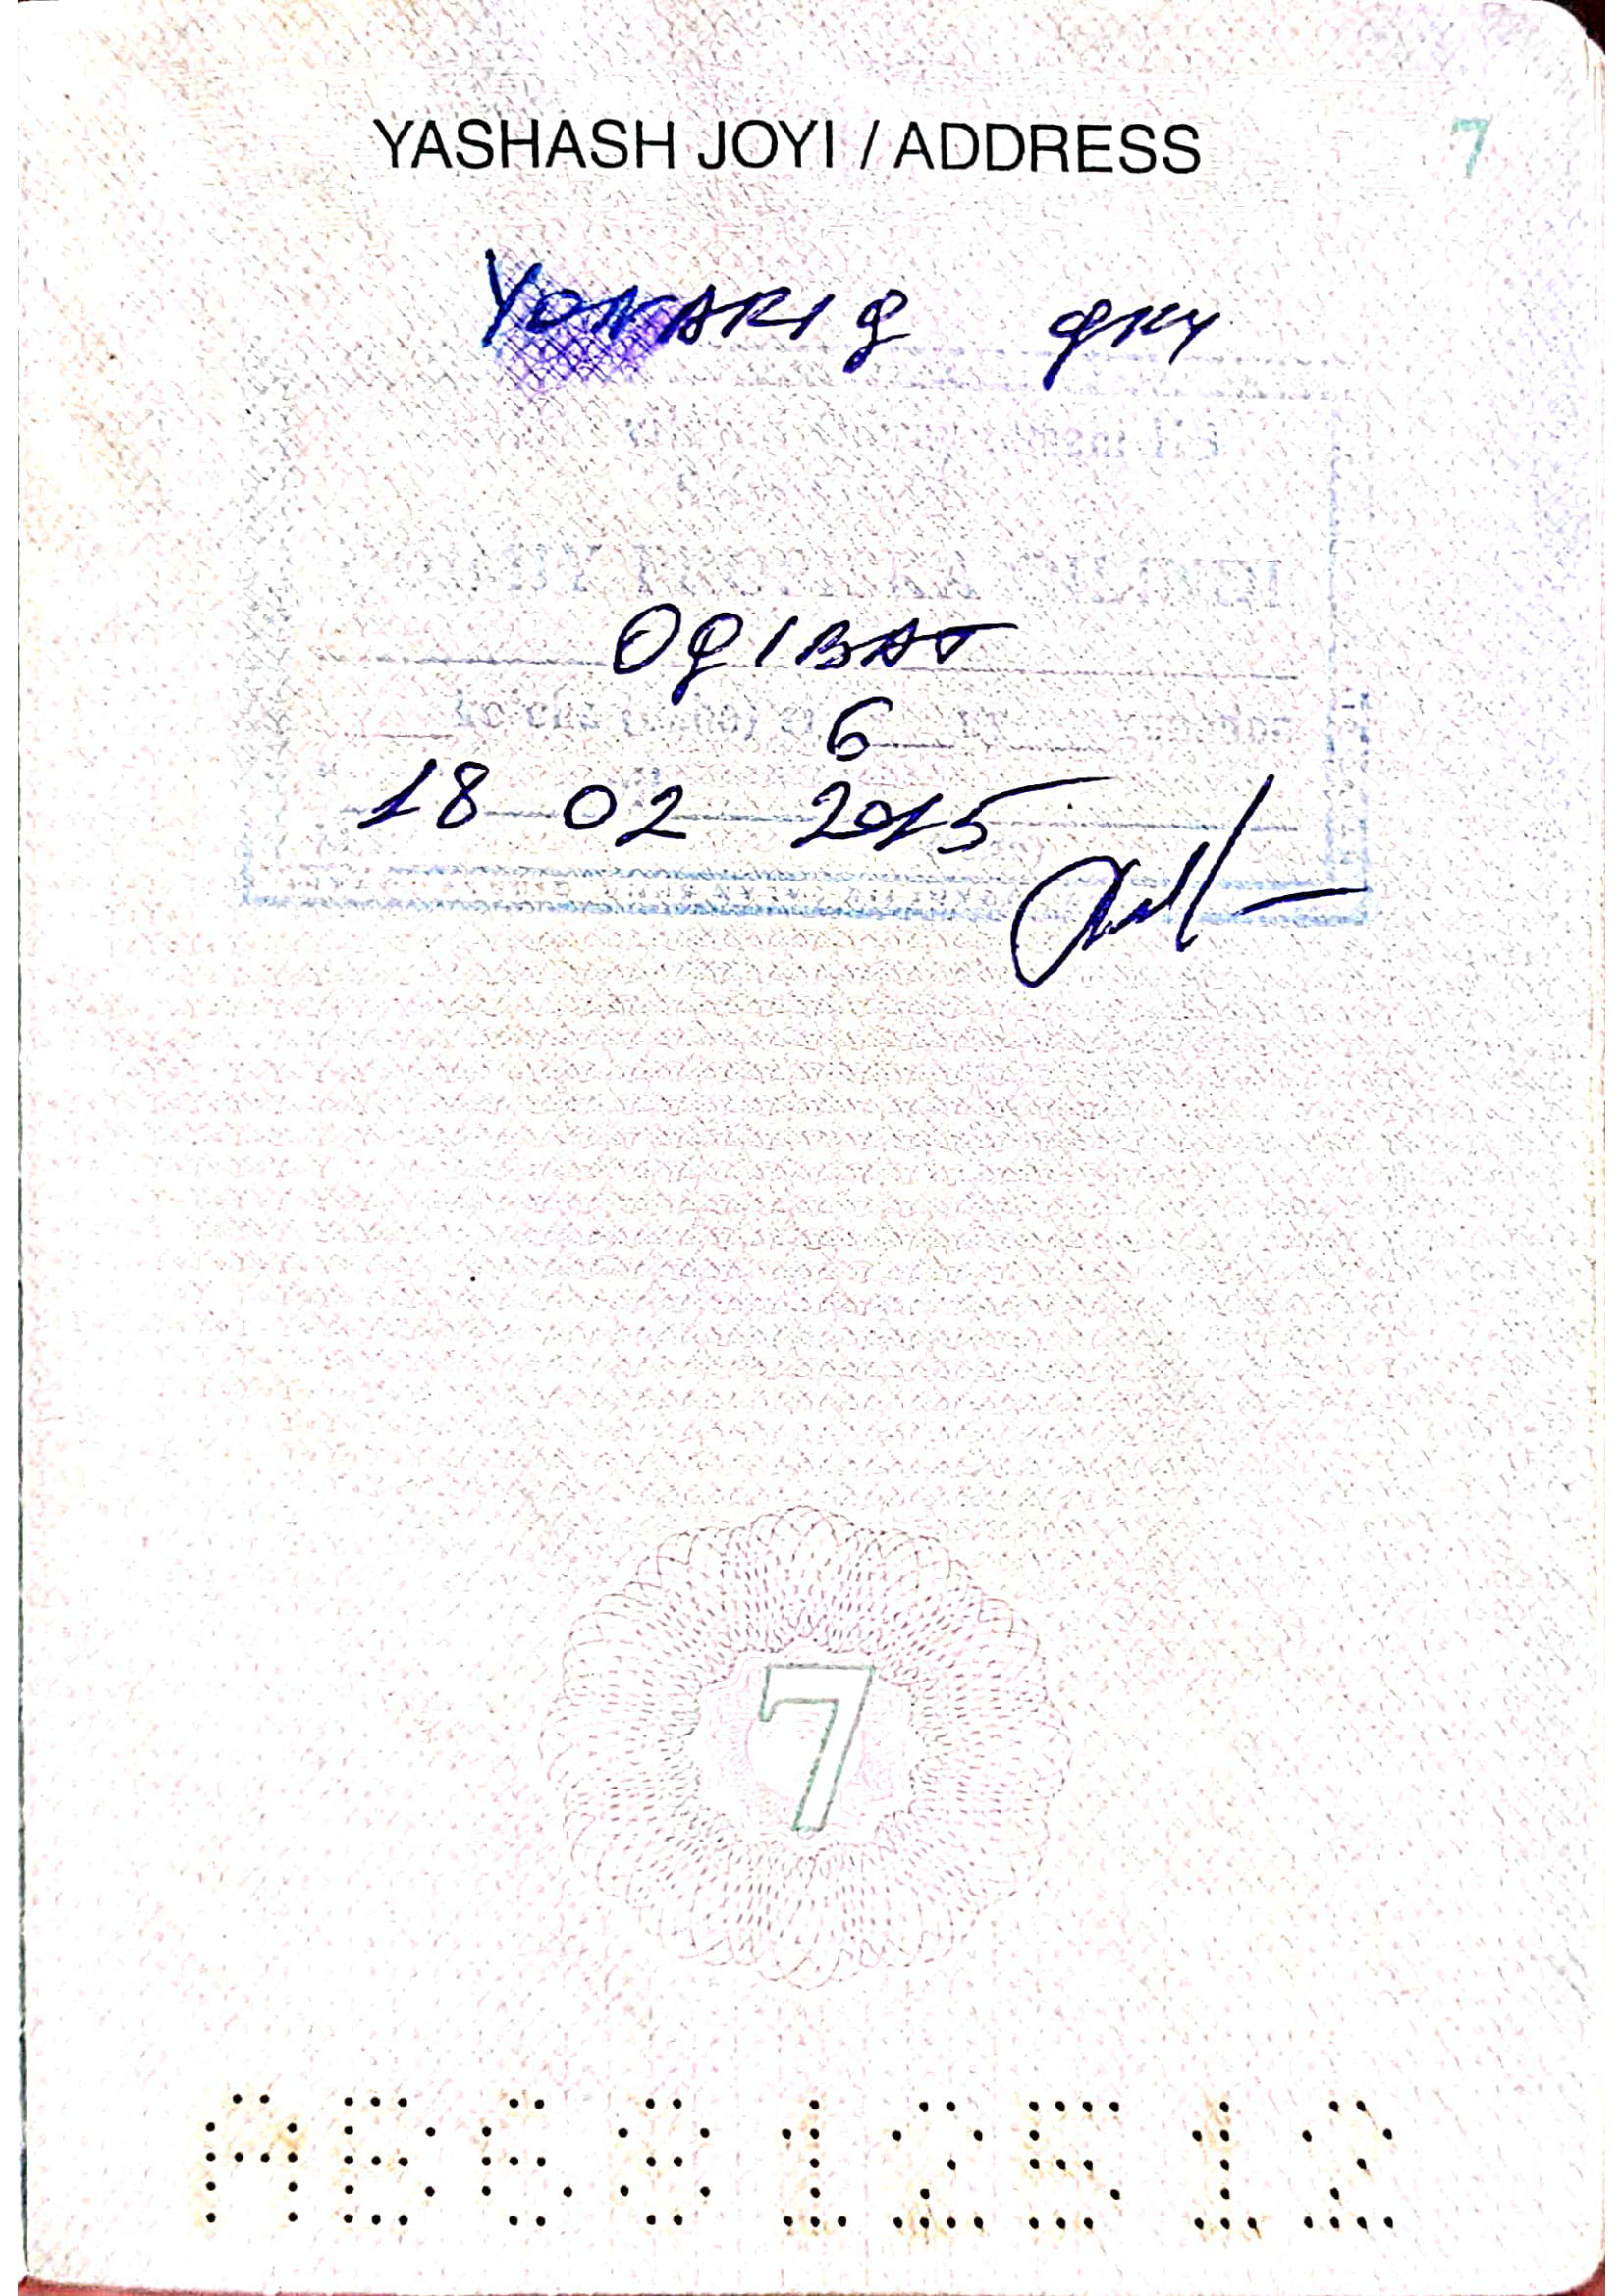 YASHASH JOYI / ADDRESS 7
YONARIQ QFY
OQIBAT
6
18 02 2015
7
AB6812512